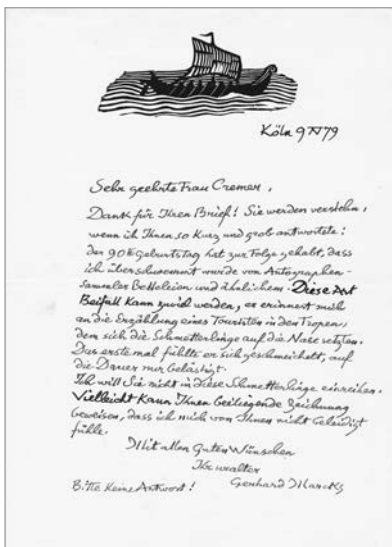 Köln 9 IV 79
Sehr geehrte Frau Cremer,
Dank für Ihren Brief! Sie werden verstehn,
wenn ich Ihnen so kurz und grob antworte:
der 90te Geburtstag hat zur Folge gehabt, dass
ich überschwemmt wurde von Autographen-
sammler Betteleien und ähnlichem. Diese Art
Beifall kann zuviel werden, es erinnert mich
an die Erzählung eines Touristen in den Tropen,
dem sich die Schmetterlinge auf die Nase setzten.
Das erste mal fühlte er sich geschmeichelt, auf
die Dauer nur belästigt.
Ich will Sie nicht in diese Schmetterlinge einreihen.
Vielleicht kann Ihnen beiliegende Zeichnung
beweisen, dass ich mich von Ihnen nicht beleidigt
fühle.
Mit allen guten Wünschen
Ihr uralter
Gerhard Marcks
Bitte keine Antwort!